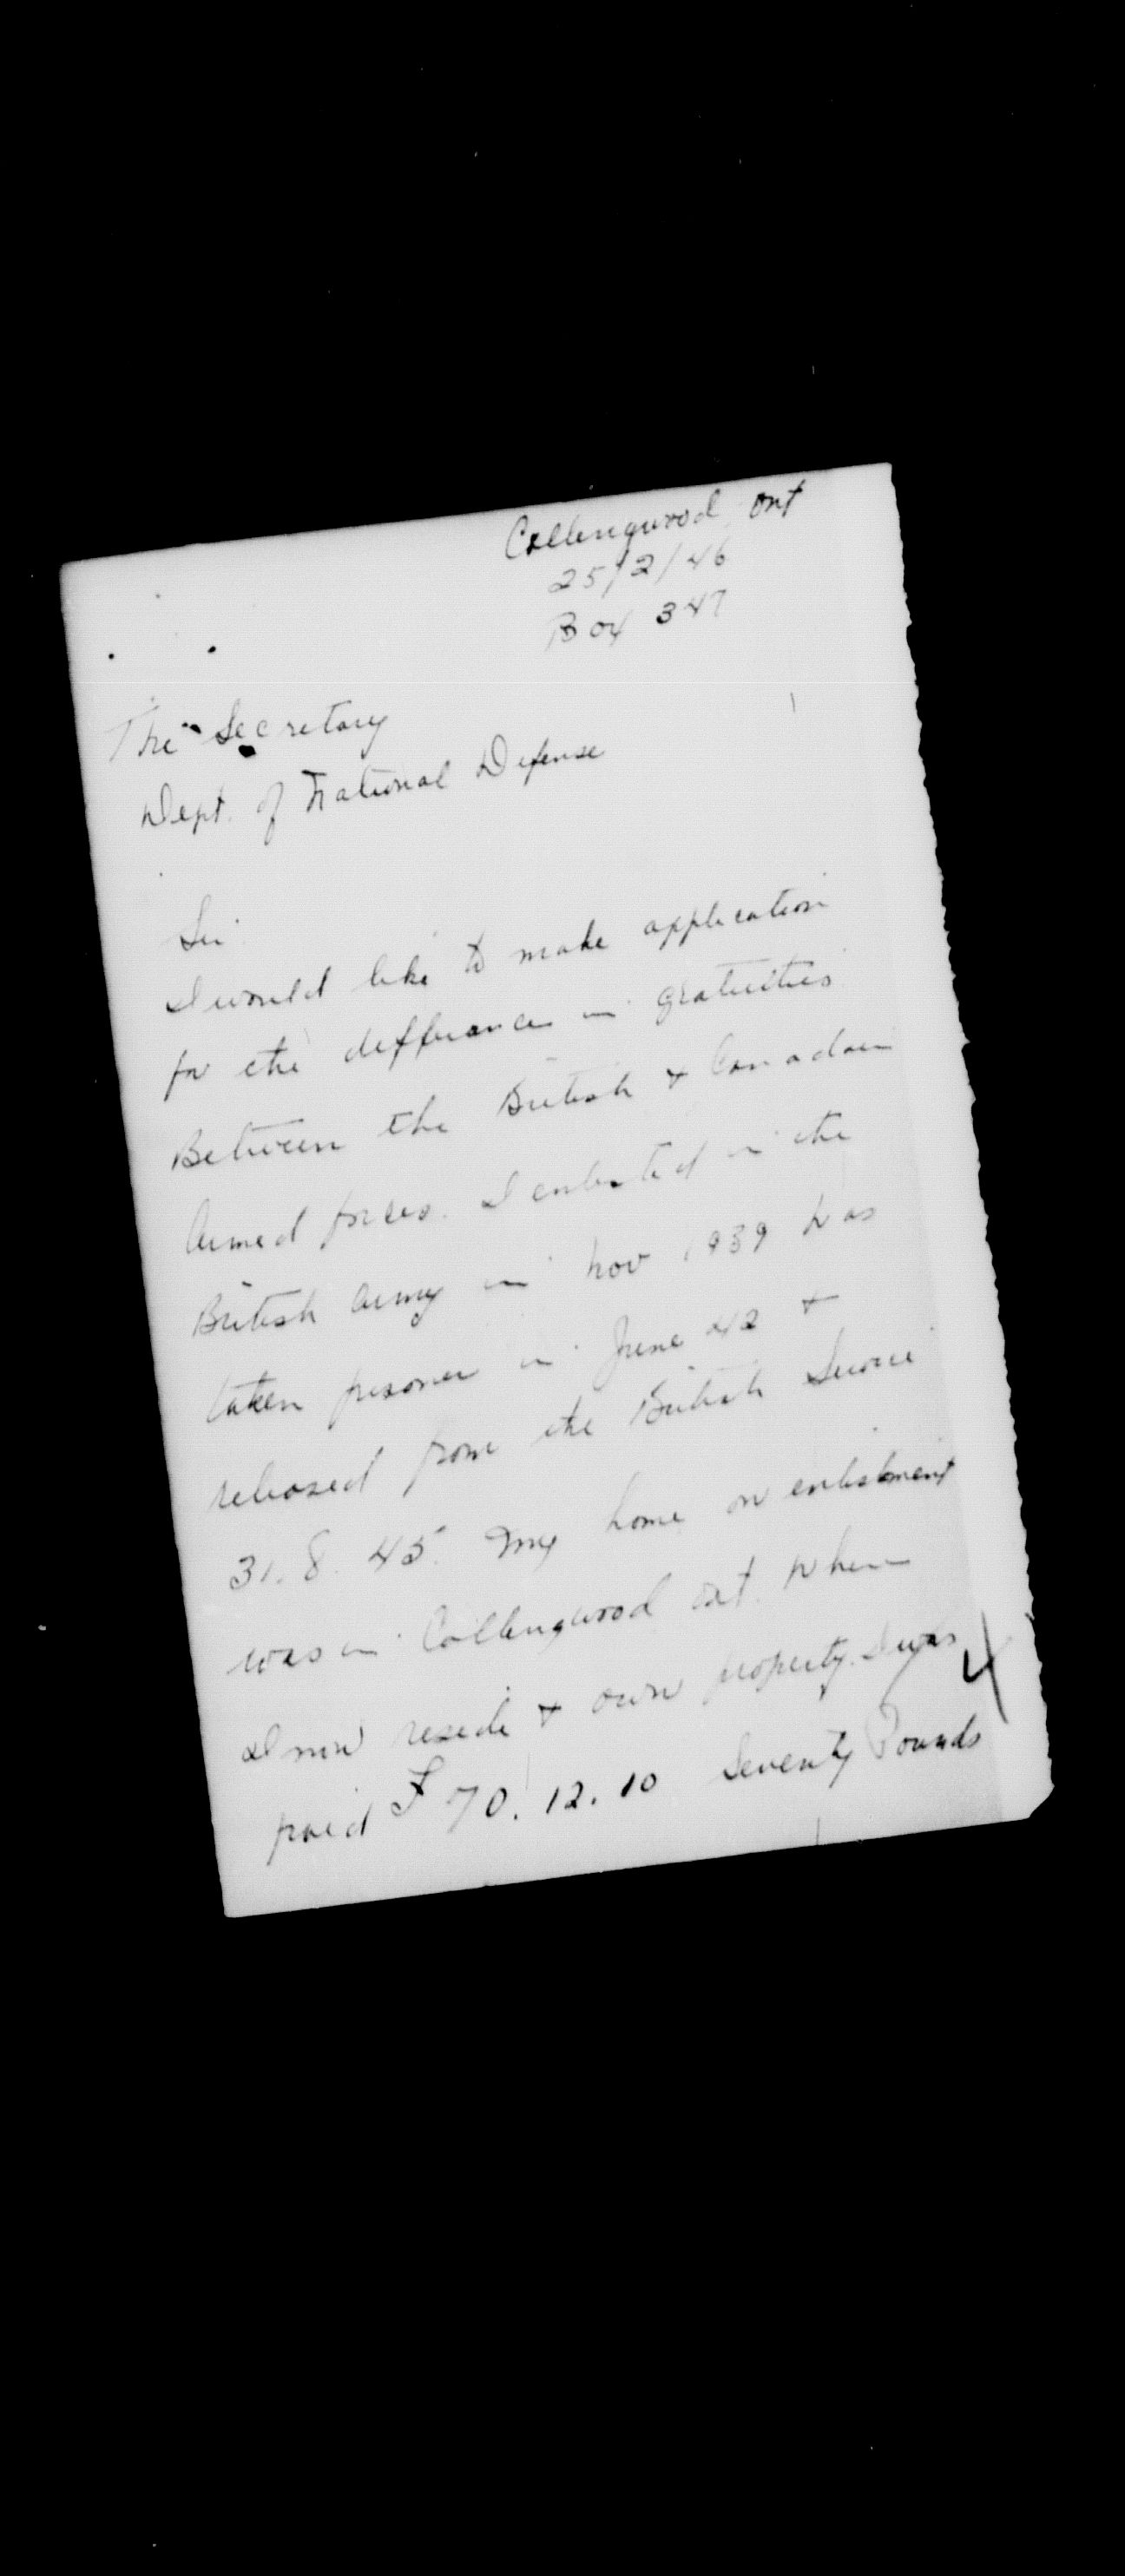 Collingwood Ont
25/2/46
Box 347
The Secretary
Dept. of National Defense
Sir
I would like to make application
for the differance in gratuities
Between the British & Canadian
Armed forces. I enlisted in the
British Army in Nov 1939 was
taken prisoner in June 42 &
released from the British Service
31.8.45. My home on enlistment
was in Collingwood Ont. Where
I now reside & own property. I was
paid £ 70.12.10 Seventy Pounds